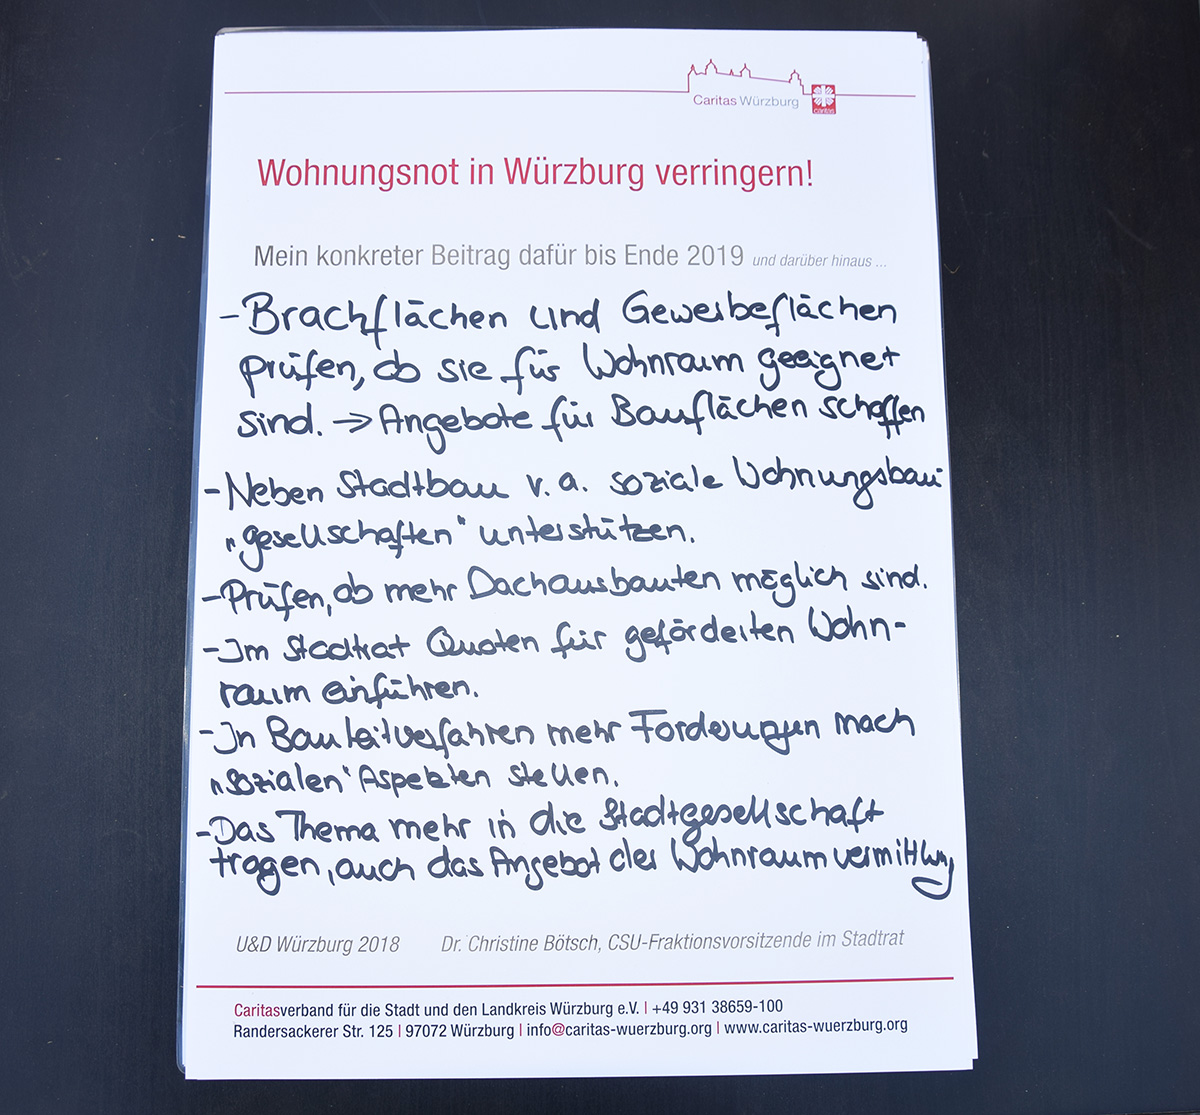 Caritas Würzburg
caritas
Wohnungsnot in Würzburg verringern!
Mein konkreter Beitrag dafür bis Ende 2019 und darüber hinaus ...
- Brachflächen und Gewerbeflächen
prüfen, ob sie für Wohnraum geeignet
sind. → Angebote für Bauflächen schaffen
- Neben Stadtbau v. a. soziale Wohnungsbau-
„gesellschaften“ unterstützen.
- Prüfen, ob mehr Dachausbauten möglich sind.
- Im Stadtrat Quoten für geförderten Wohn-
raum einführen.
- In Bauleitverfahren mehr Forderungen nach
„sozialen“ Aspekten stellen.
- Das Thema mehr in die Stadtgesellschaft
tragen, auch das Angebot der Wohnraumvermittlung
U&D Würzburg 2018 Dr. Christine Bötsch, CSU-Fraktionsvorsitzende im Stadtrat
Caritasverband für die Stadt und den Landkreis Würzburg e.V. | +49 931 38659-100
Randersackerer Str. 125 | 97072 Würzburg | info@caritas-wuerzburg.org | www.caritas-wuerzburg.org